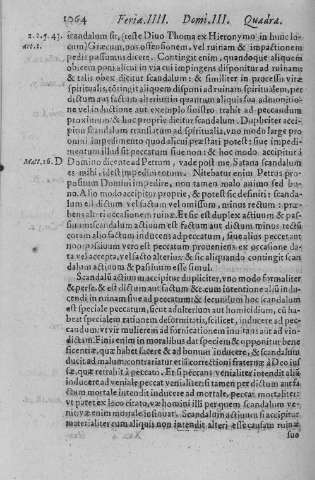 1064 Feria. IIII. Domi. III. Quadra.
2.2.q.43. scandalum sit, (teste Diuo Thoma ex Hieronymo in hunc lo-
art.1. cum) Græcum, nos offensionem, vel ruinam & impactionem
pedis possumus dicere. Contingit enim, quandoque aliquem
obicem poni alicui in via cui impingens disponitur ad ruinam:
& talis obex dicitur scandalum: & similiter in processu vitæ
spiritualis, contingit aliquem disponi ad ruinam spiritualem, per
dictum aut factum alterius in quantum aliquis sua admonitio-
ne vel inductione aut exemplo suo trahit ad peccandum
proximum & hoc proprie dicitur scandalum. Dupliciter acci-
pitur scandalum translatum ad spiritualia, vno modo large pro
omni impedimento quod alicui præstari potest: siue impedi-
mentum illud sit peccatum siue non: & hoc modo accipitur à
Matt.16. D Domino dicente ad Petrum, vade post me Satana scandalum
es mihi, id est impedimentum. Nitebatur enim Petrus pro-
positum Domini impedire, non tamen malo animo sed bo-
no. Alio modo accipitur proprie, & potest sic definiri: scanda-
lum est dictum vel factum vel omissum, minus rectum: præ-
bens alteri occasionem ruinæ. Et sic est duplex actiuum & pas-
siuum scandalum actiuum est factum aut dictum minus rectū
coram alio factum inducens ad peccatum, siue alius peccet an
non passiuum vero est peccatum proueniens ex occasione da-
ta vel accepta, vel facto alterius, & sic aliquando contingit scan
dalum actiuum & passiuum esse simul.
Scandalū actiuum accipitur dupliciter, vno modo formaliter
& per se. & est dictum aut factum &c cum intentione aliū indu-
cendi in ruinam siue ad peccatum: & secundum hoc scandalum
est speciale peccatum, sicut adulterium aut homicidium, cū ha-
beat specialem rationem deformitatis, scilicet, inducere ad pec-
candum: vt vir mulierem ad fornicationem inuitans aut ad vin-
dictam. Finis enim in moralibus dat speciem & opponitur bene
ficentiæ, quæ habet facere & ad bonum inducere, & scandalum
ducit ad malum: contrariatur etiā correctioni fraternæ à Deo ius-
sæ, quæ retrahit à peccato. Et si peccans venialiter intendit aliū
inducere ad veniale peccat venialiter si tamen per dictum aut fa-
ctum mortale intendit inducere ad mortale, peccat mortaliter:
vt patet ex loco citato, væ homini illi per quem scandalum ve-
nit, væ enim mortale insinuat. Scandalum actiuum si accipitur
materialiter cum aliquis non intendit alteri esse causam ruinæ
suo